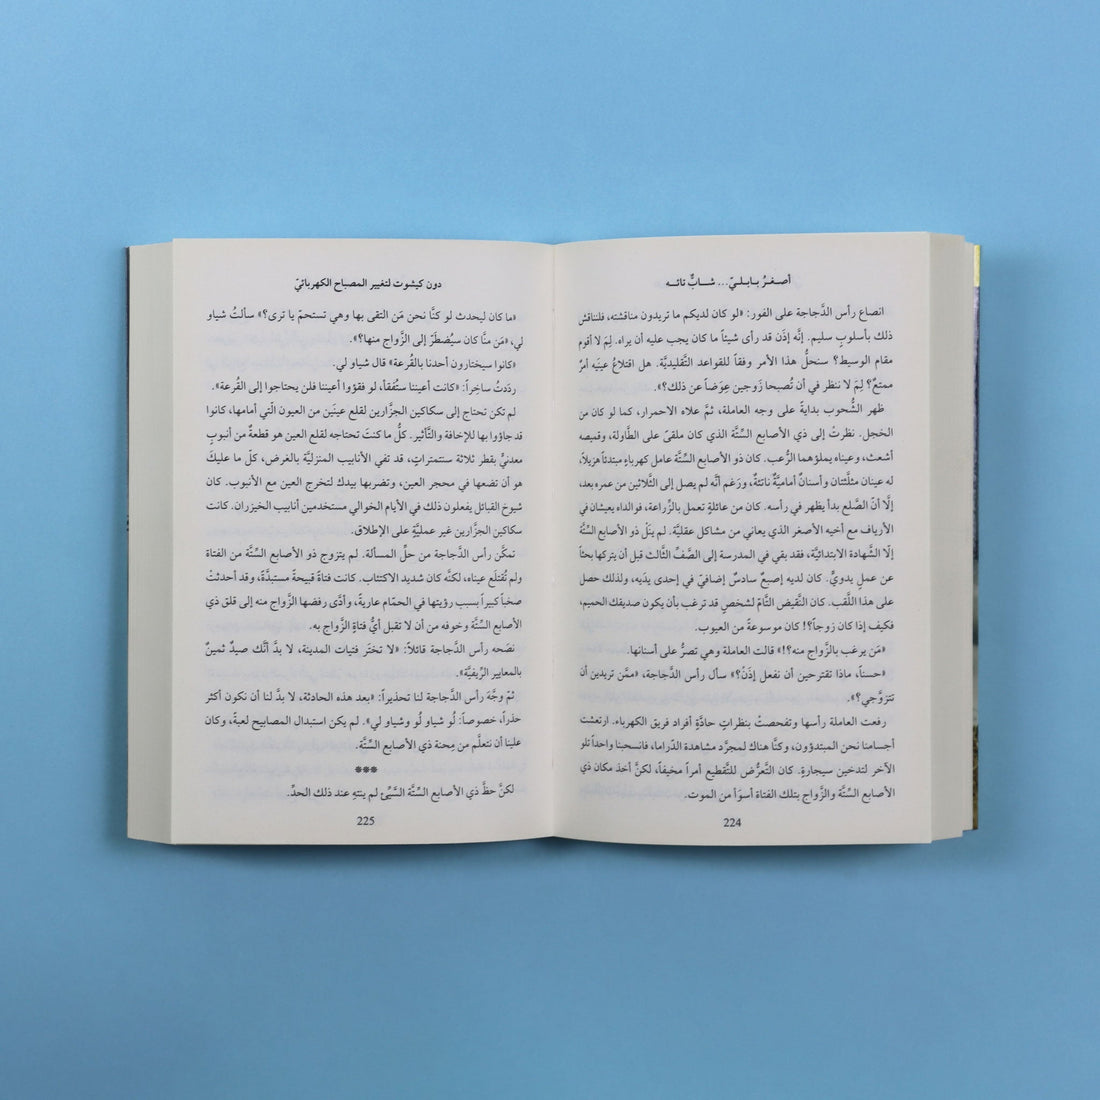 أصـغـرُ بـابـلـيّ... شـــابٌّ تائـــه
انصاع رأس الدَّجاجة على الفور: «لو كان لديكم ما تريدون مناقشته، فلنناقش
ذلك بأسلوبٍ سليم. إنَّه إذَن قد رأى شيئاً ما كان يجب عليه أن يراه. لِمَ لا أقوم
مقام الوسيط؟ سنحلُّ هذا الأمر وفقاً للقواعد التَّقليديَّة. هل اقتلاعُ عينَيه أمرٌ
ممتعٌ؟ لِمَ لا ننظر في أن تُصبحا زَوجين عِوَضاً عن ذلك؟».
ظهر الشُّحوب بدايةً على وجه العاملة، ثمَّ علاه الاحمرار، كما لو كان من
الخجل. نظرتُ إلى ذي الأصابع السِّتَّة الذي كان ملقىً على الطَّاولة، وقميصه
أشعث، وعيناه يملؤهما الرُّعب. كان ذو الأصابع السِّتَّة عامل كهرباءٍ مبتدئاً هزيلاً،
له عينان مثلَّثتان وأسنانٌ أماميَّةٌ ناتئةٌ، ورَغم أنَّه لم يصل إلى الثَّلاثين من عمره بعد،
إلَّا أنّ الصَّلع بدأ يظهر في رأسه. كان من عائلةٍ تعمل بالزِّراعة، فوالداه يعيشان في
الأرياف مع أخيه الأصغر الذي يعاني من مشاكل عقليَّة. لم يَنَلْ ذو الأصابع السِّتَّة
إلَّا الشَّهادة الابتدائيَّة، فقد بقي في المدرسة إلى الصَّفِّ الثَّالث قبل أن يتركها بحثاً
عن عملٍ يدويٍّ. كان لديه إصبعٌ سادسٌ إضافيّ في إحدى يدَيه، ولذلك حصل
على هذا اللَّقب. كان النَّقيض التَّامّ لشخصٍ قد ترغب بأن يكون صديقك الحميم،
فكيف إذا كان زوجاً؟! كان موسوعةً من العيوب.
«مَن يرغب بالزَّواج منه؟!» قالت العاملة وهي تصرُّ على أسنانها.
«حسناً، ماذا تقترحين أن نفعل إذَنْ؟» سأل رأس الدَّجاجة، «ممَّن تريدين أن
تتزوَّجي؟».
رفعت العاملة رأسها وتفحصتْ بنظراتٍ حادَّةٍ أفراد فريق الكهرباء. ارتعشت
أجسامنا نحن المبتدؤون، وكنَّا هناك لمجرَّد مشاهدة الدّراما، فانسحبنا واحداً تلو
الآخر لتدخين سيجارةٍ. كان التَّعرُّض للتَّقطيع أمراً مخيفاً، لكنَّ أخذ مكان ذي
الأصابع السِّتَّة والزَّواج بتلك الفتاة أسوَأ من الموت.
224
دون كيشوت لتغيير المصباح الكهربائيّ
«ما كان ليحدث لو كنَّا نحن مَن التقى بها وهي تستحمّ يا ترى؟» سألتُ شياو
لي، «مَن منَّا كان سيُضطَرّ إلى الزَّواج منها؟».
«كانوا سيختارون أحدنا بالقُرعة» قال شياو لي.
ردَدتُ ساخِراً: «كانت أعيننا ستُفقأ، لو فقؤوا أعيننا فلن يحتاجوا إلى القُرعة».
لم تكن تحتاج إلى سكاكين الجزَّارين لقلع عينَين من العيون الَّتي أمامها، كانوا
قد جاؤوا بها للإخافة والتَّأثير. كلُّ ما كنتَ تحتاجه لقلع العين هو قطعةٌ من أنبوبٍ
معدنيٍّ بقطر ثلاثة سنتمترات، قد تفي الأنابيب المنزليَّة بالغرض، كلّ ما عليكَ
هو أن تضعها في محجر العين، وتضربها بيدك لتخرج العين مع الأنبوب. كان
شيوخ القبائل يفعلون ذلك في الأيام الخوالي مستخدمين أنابيب الخيزران. كانت
سكاكين الجزَّارين غير عمليَّةٍ على الإطلاق.
تمكَّن رأس الدَّجاجة من حلِّ المسألة. لم يتزوج ذو الأصابع السِّتَّة من الفتاة
ولم تُقتلَع عيناه، لكنَّه كان شديد الاكتئاب. كانت فتاةً قبيحةً مستبدَّةً، وقد أحدثتْ
صخباً كبيراً بسبب رؤيتها في الحمّام عاريةً، وأدَّى رفضها الزَّواج منه إلى قلق ذي
الأصابع السِّتَّة وخوفه من أن لا تقبل أيُّ فتاةٍ الزَّواج به.
نصَحه رأس الدَّجاجة قائلاً: «لا تختَر فتيات المدينة، لا بدَّ أنَّك صيدٌ ثمينٌ
بالمعايير الرِّيفيَّة».
ثمّ وجَّهَ رأس الدَّجاجة لنا تحذيراً: «بعد هذه الحادثة، لا بدَّ لنا أن نكون أكثر
حذراً، خصوصاً: لُو شياو لُو وشياو لي». لم يكن استبدال المصابيح لعبةً، وكان
علينا أن نتعلَّم من مِحنة ذي الأصابع السِّتَّة.
***
لكنَّ حظَّ ذي الأصابع السِّتَّة السَّيِّئ لم ينتهِ عند ذلك الحدِّ.
225